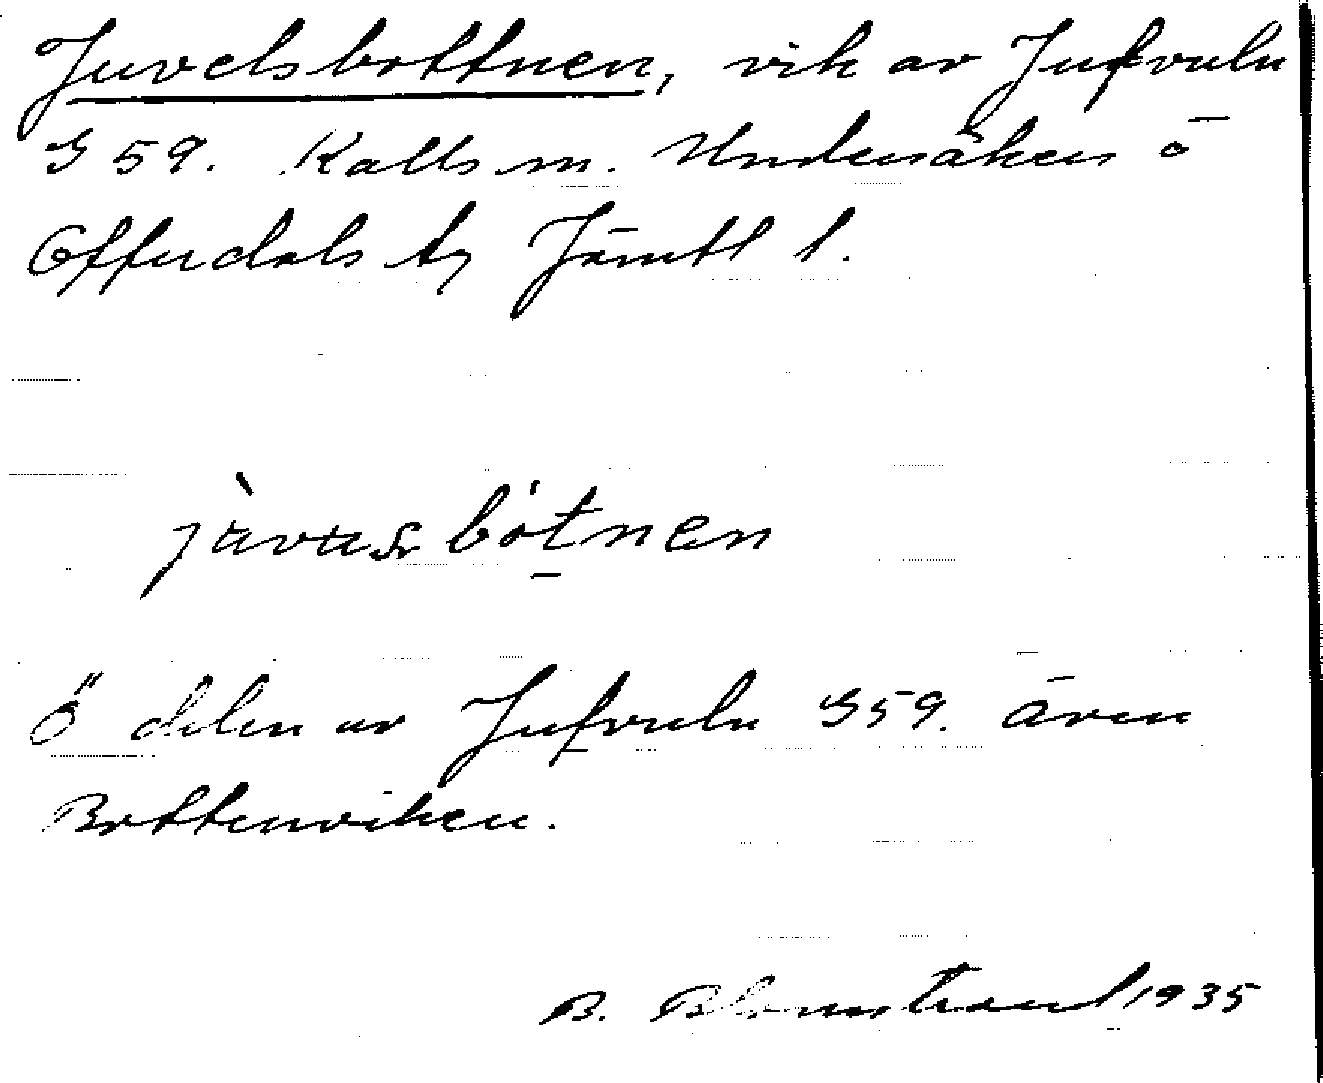 Juvelsbottnen, vik av Jufvuln
G 59. Kalls sn. Undersåkers o
Offerdals tg Jämtl l.
bòtnen
Ö delen av Jufvuln G59. även
Bottenviken.
B. Blomstrand 1935